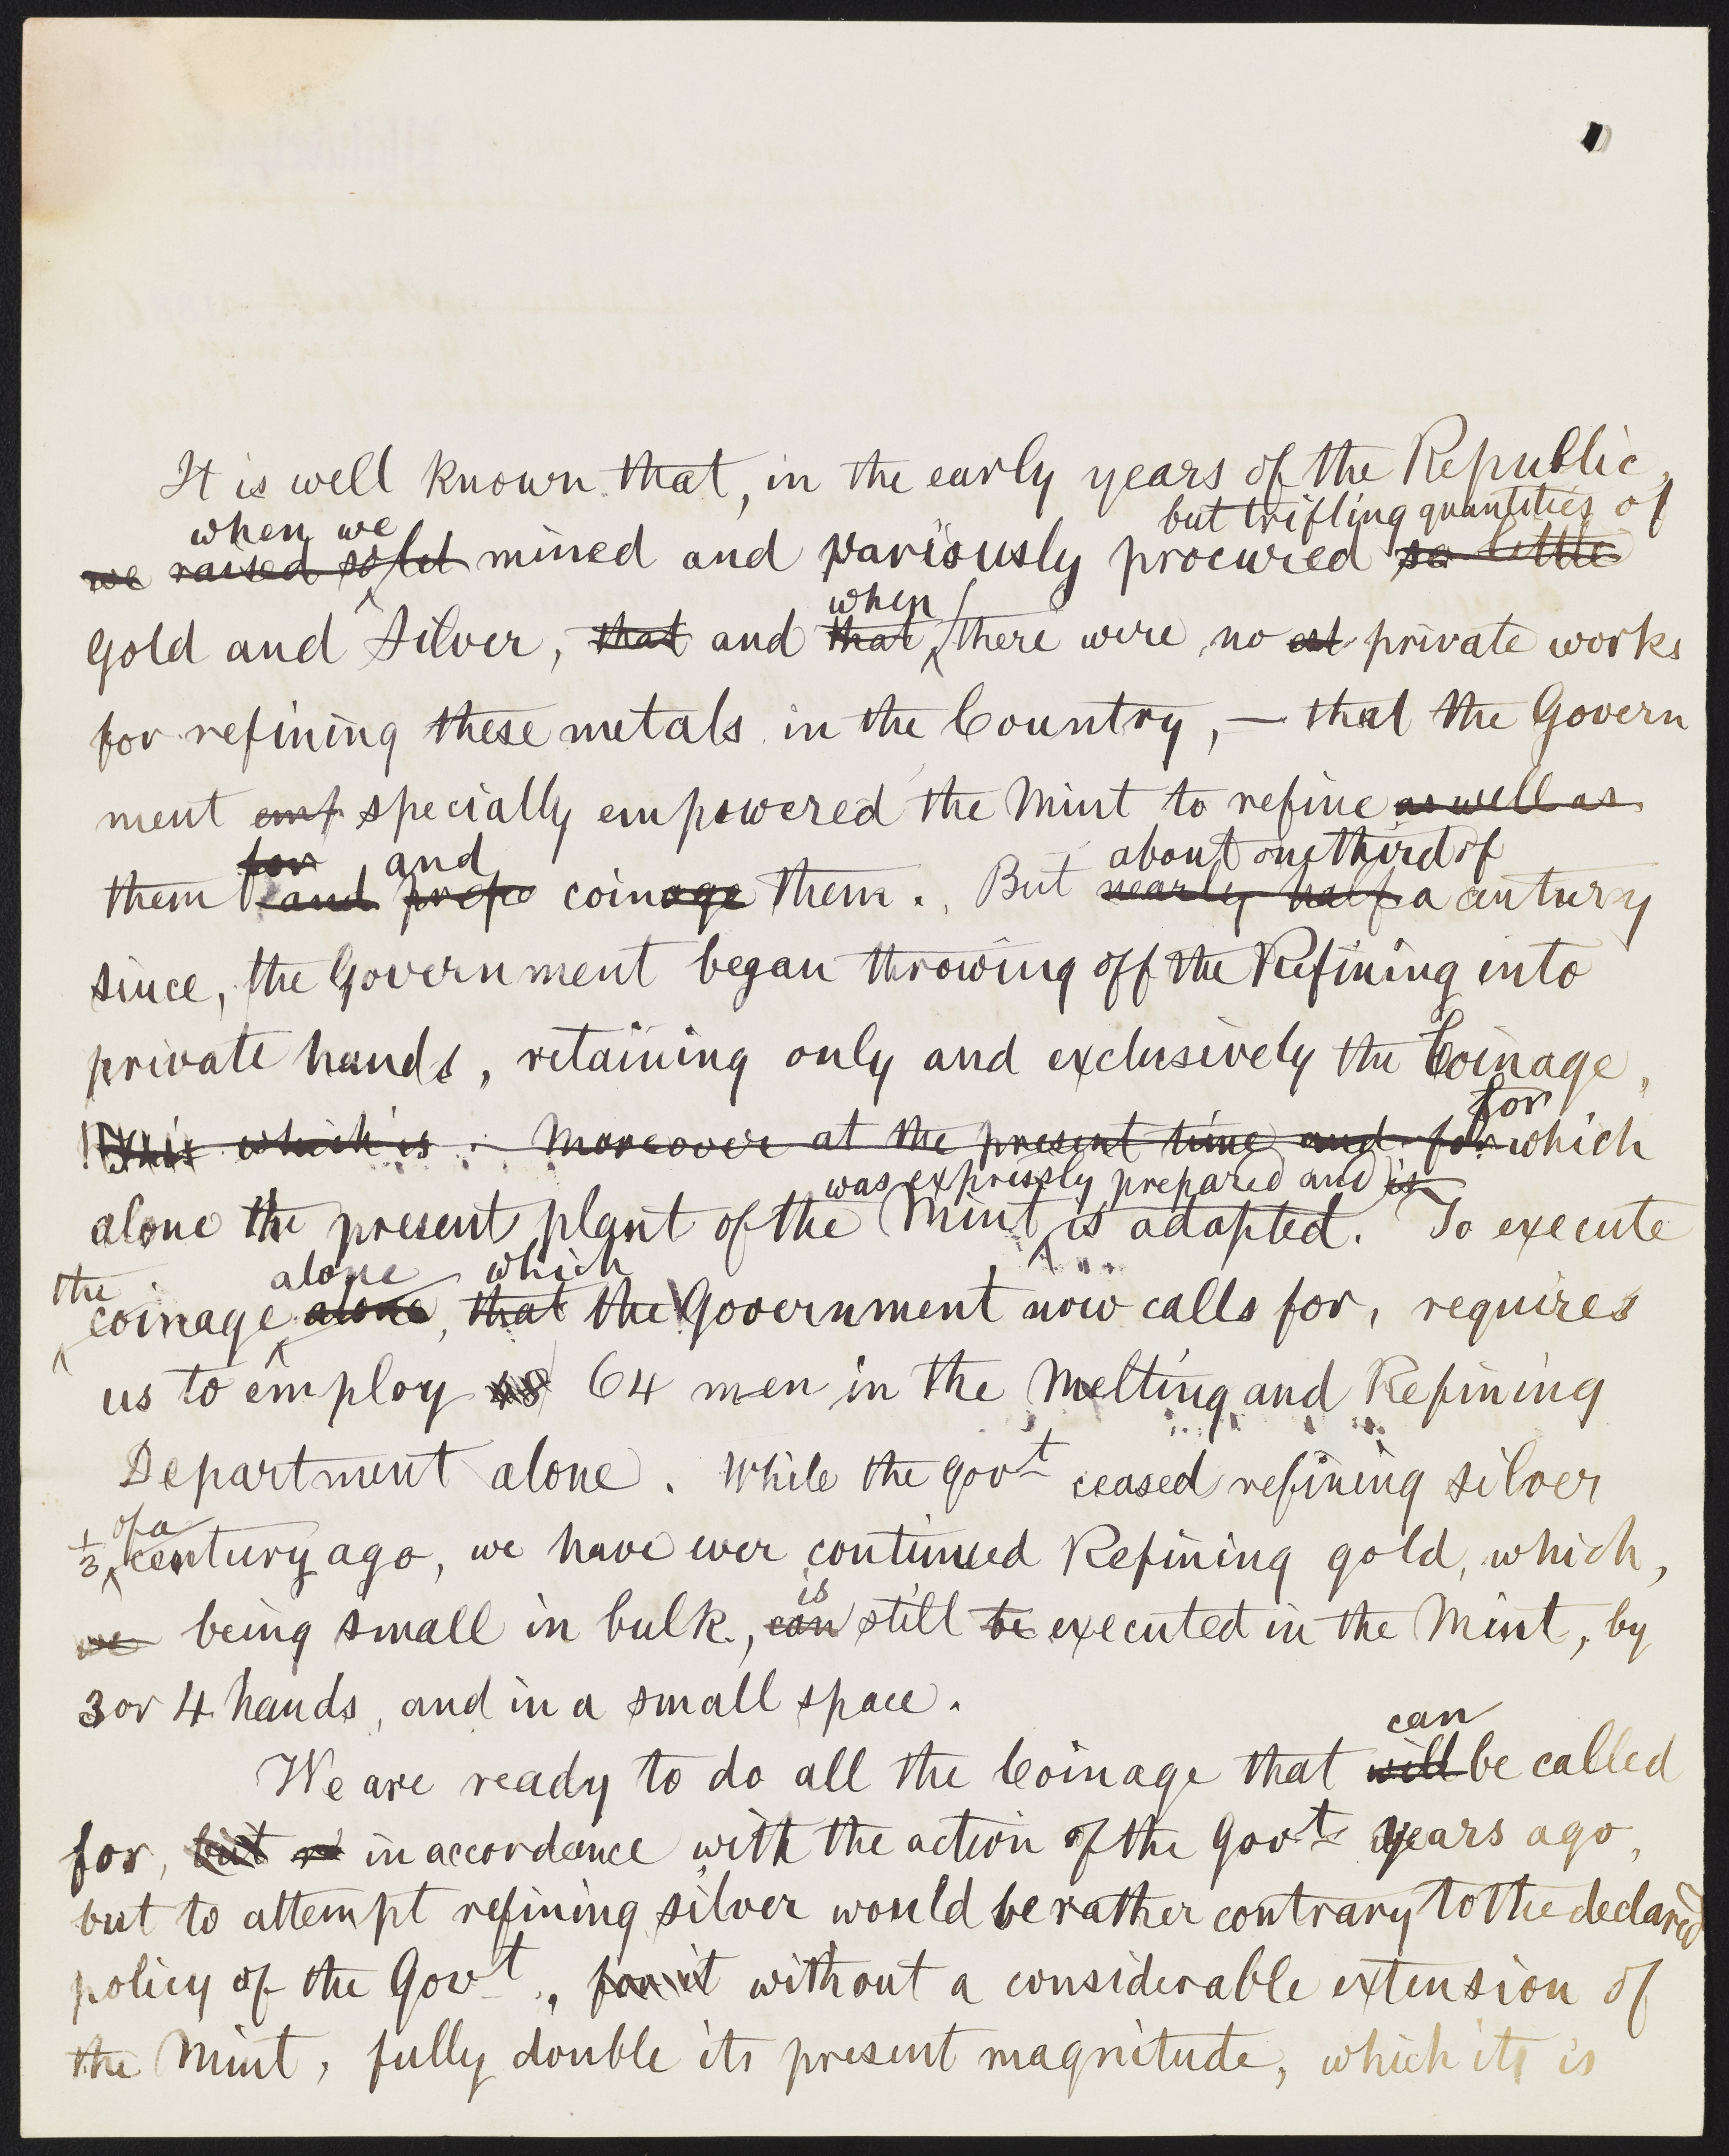 It is well known that, in the early years of the Republic,
when we but trifling quantities of
we raised mined and variously procured so little
when
gold and Silver, that and that, there were no est private works
for refining these metals in the Country, — that the Govern
ment emp specially empowered the Mint to refine as well as
for and about one third of
them and prepe coinage them. But nearly half a century
since, the Government began throwing off the Refining into
private hands, retaining only and exclusively the Coinage,
for
This which is. Moreover at the present time and for which
was expressly prepared and is
alone the present plant of the Mint is adapted. To execute
the alone which
coinage alone, that the Government now calls for, requires
us to employ 48 64 men in the Melting and Refining
Department alone. While the Govt ceased refining silver
of a
1/3 century ago, we have ever continued Refining gold, which,
is
we being small in bulk, can still be executed in the Mint, by
3 or 4 hands, and in a small space.
can
We are ready to do all the Coinage that will be called
for, but in accordance with the action of the Govt years ago,
but to attempt refining silver would be rather contrary to the declared
policy of the Govt, for it without a considerable extension of
the Mint, fully double its present magnitude, which its is